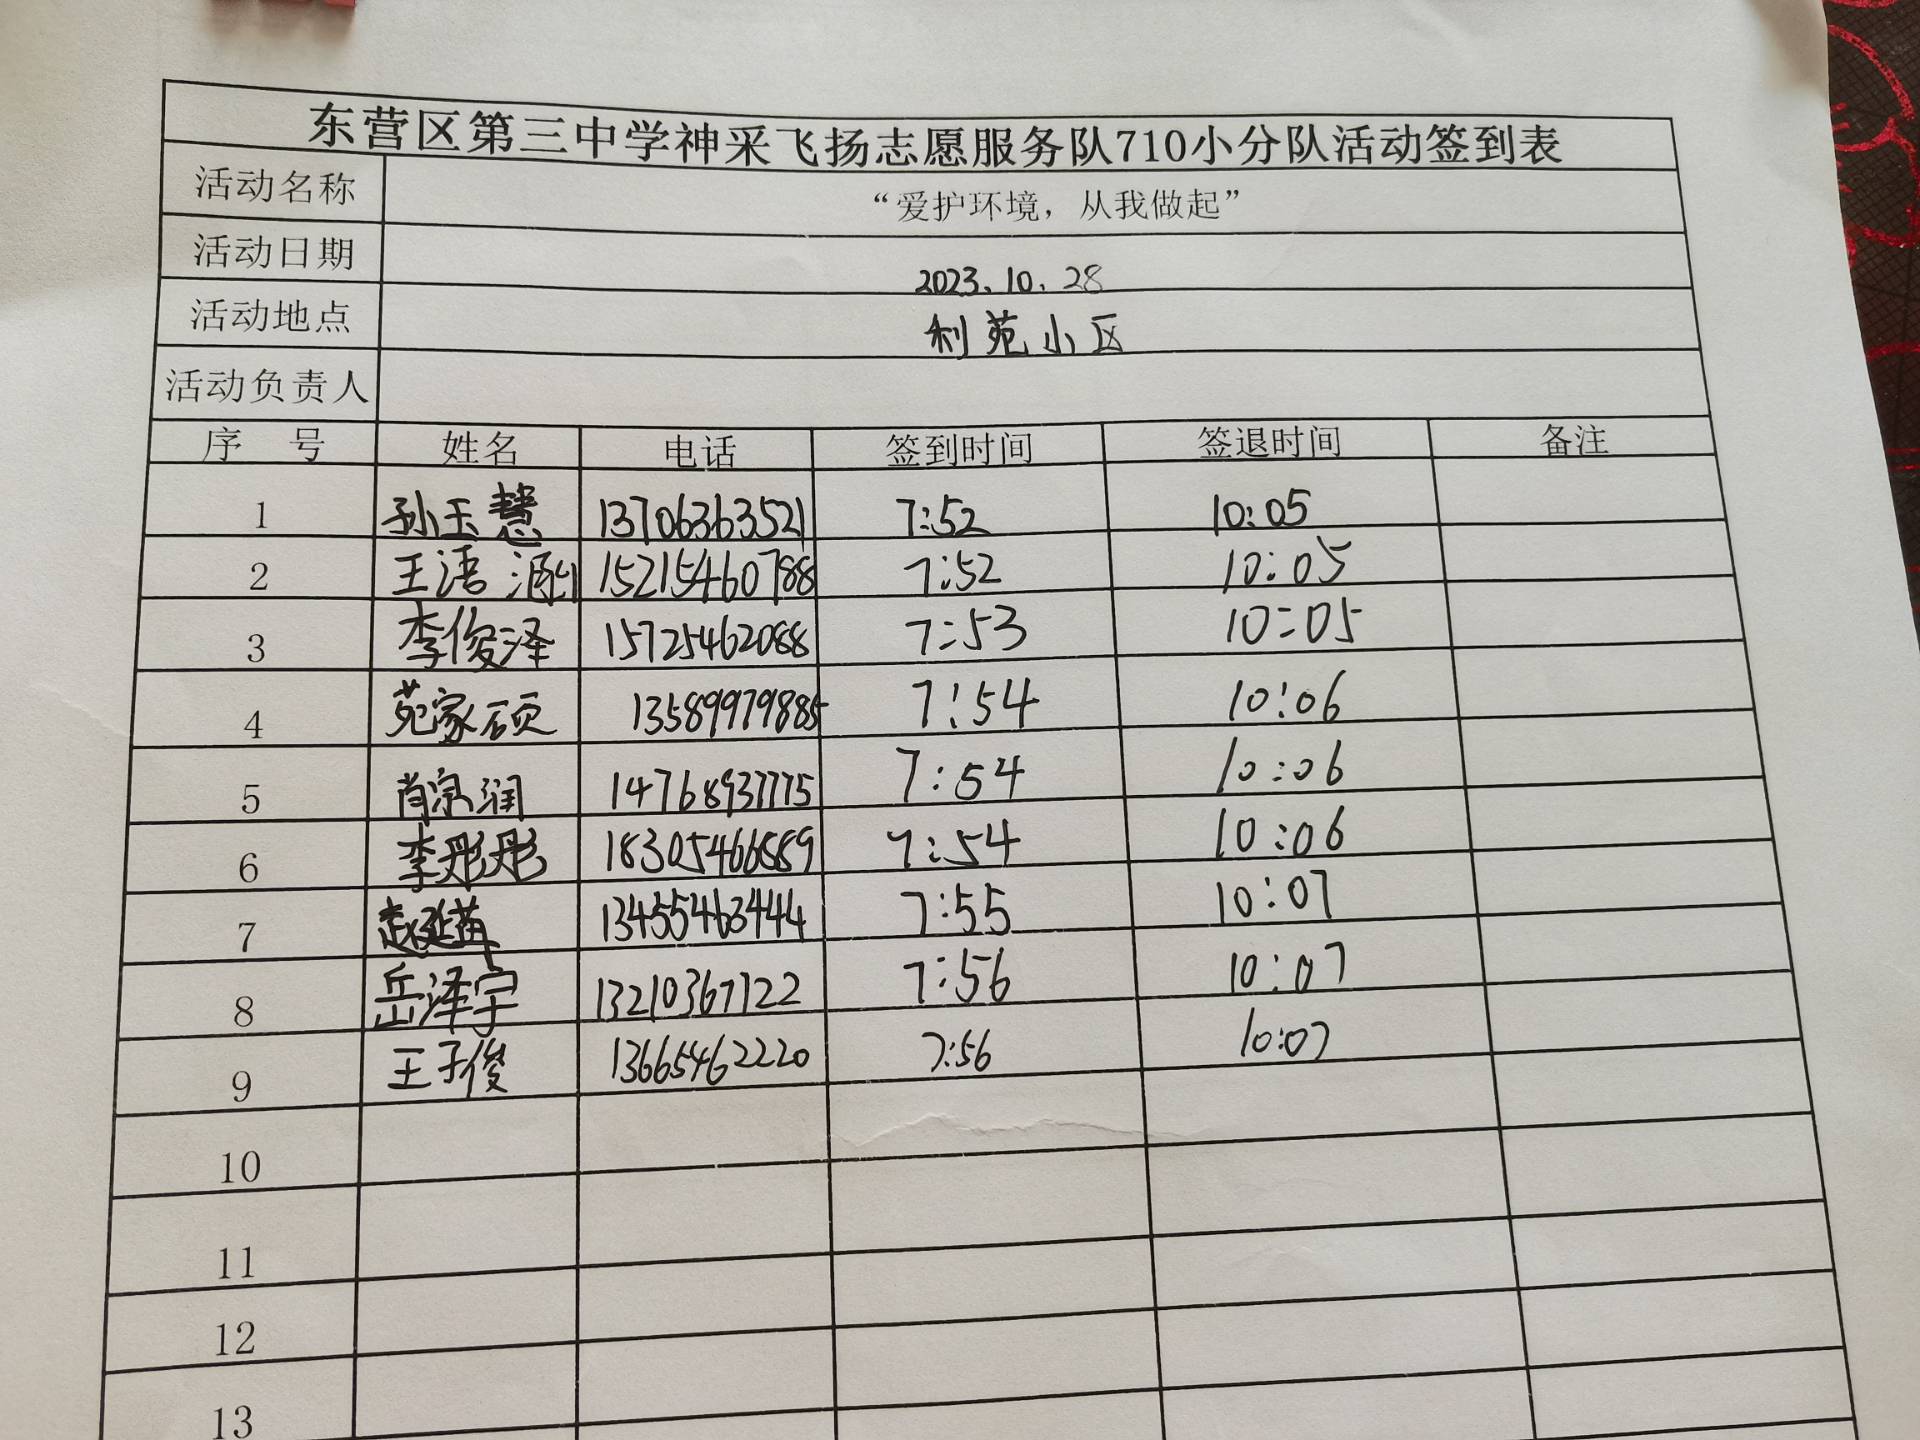 东营区第三中学神采飞扬志愿服务队710小分队活动签到表
活动名称 “爱护环境，从我做起”
活动日期 2023.10.28
活动地点 利苑小区
活动负责人
序 号 姓名 电话 签到时间 签退时间 备注
1 孙玉慧 13706363521 7:52 10:05
2 王语涵 15215460788 7:52 10:05
3 李俊泽 15725462088 7:53 10:05
4 苑家硕 13589979885 7:54 10:06
5 肖宗润 14768937775 7:54 10:06
6 李彤彤 18305466889 7:54 10:06
7 赵延苒 13455463444 7:55 10:07
8 岳泽宇 13210367122 7:56 10:07
9 王子俊 13665462220 7:56 10:07
10
11
12
13